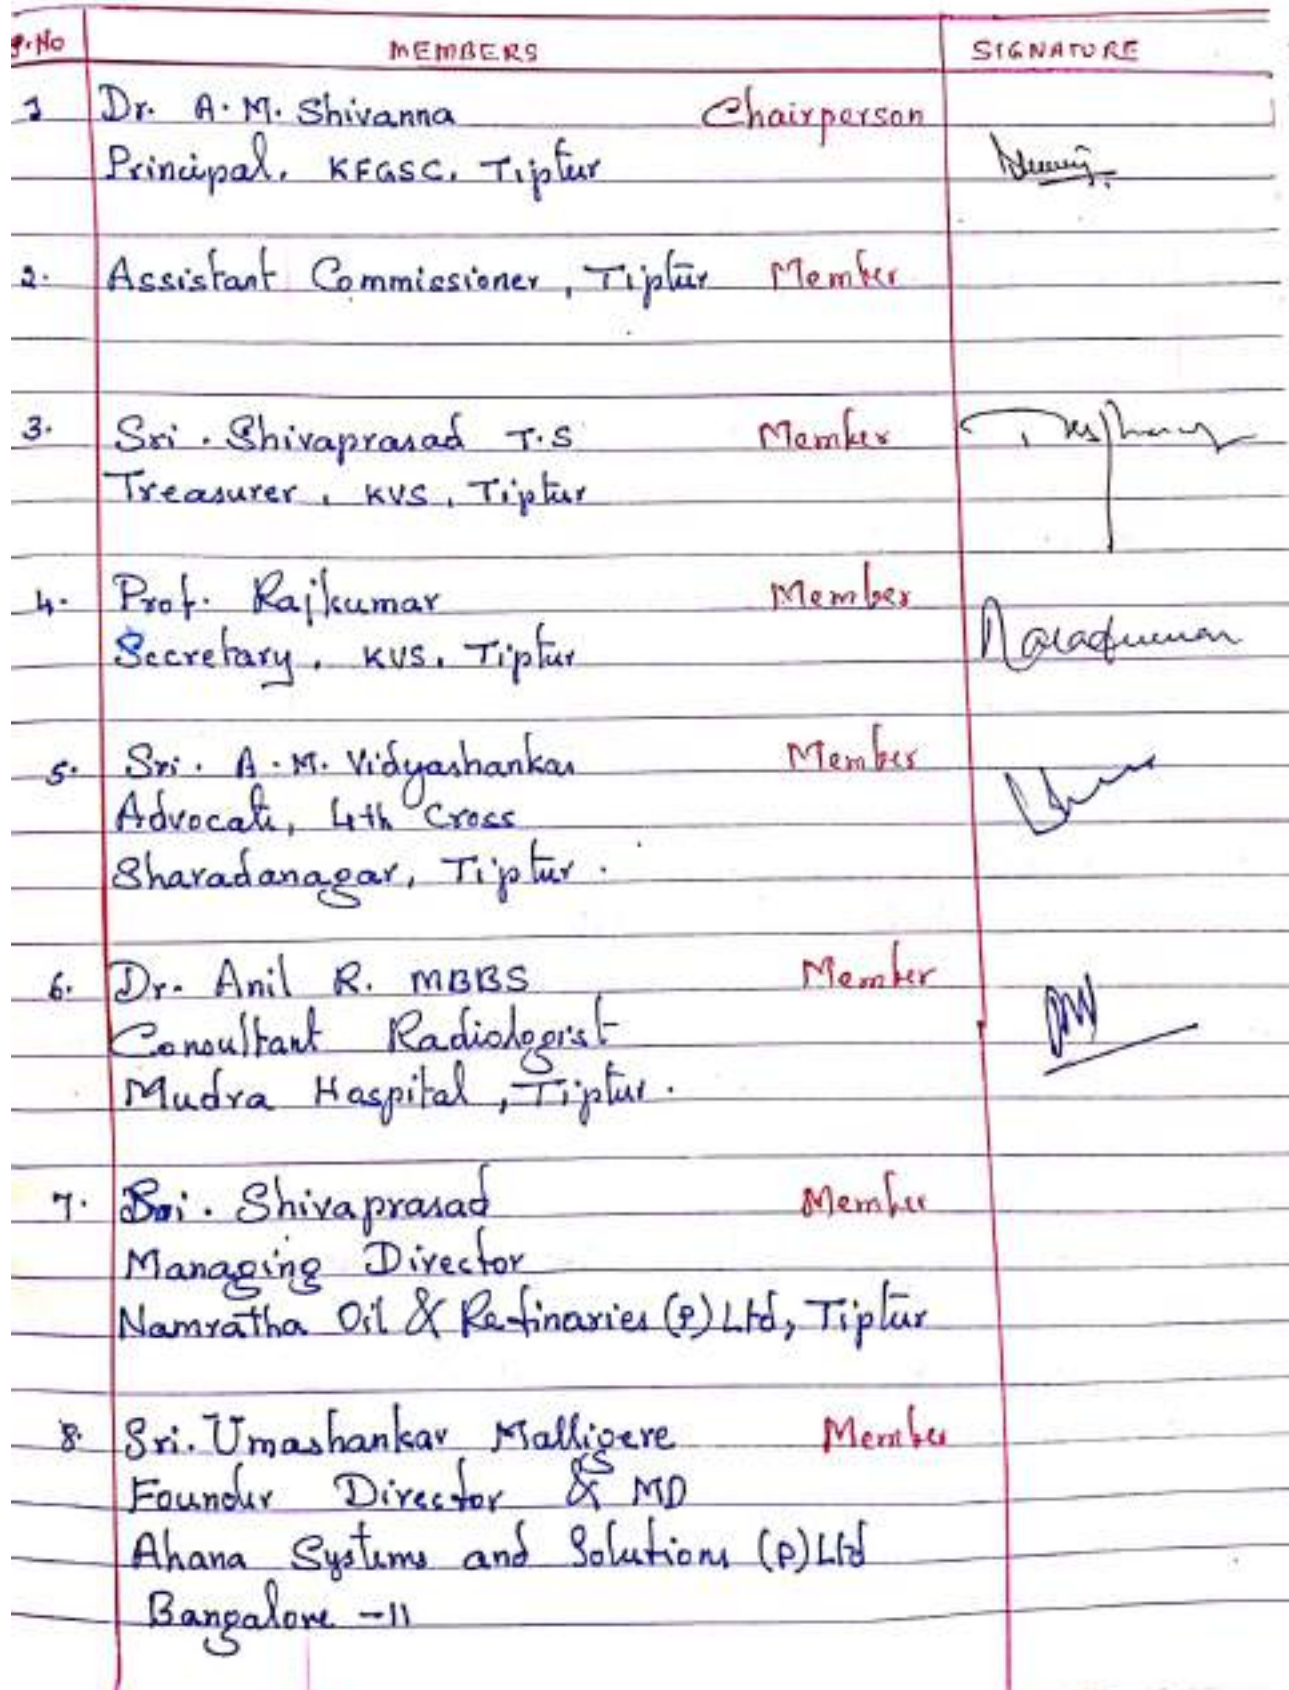 S.No MEMBERS SIGNATURE
1 Dr. A.M. Shivanna Chairperson
Principal. KFGSC. Tiptur
2. Assistant Commissioner, Tiptur Member
3. Sri. Shivaprasad T.S Member
Treasurer, KVS, Tiptur
4. Prof. Rajkumar Member
Secretary, KVS. Tiptur
5. Sri. A.M. Vidyashankar Member
Advocate, 4th Cross
Sharadanagar, Tiptur.
6. Dr. Anil R. MBBS Member
Consultant Radiologist
Mudra Haspital, Tiptur.
7. Sri. Shivaprasad Member
Managing Director
Namratha Oil & Refinaries (P) Ltd, Tiptur
8. Sri. Umashankar Malligere Member
Founder Director & MD
Ahana Systems and Solutions (P) Ltd
Bangalore -11